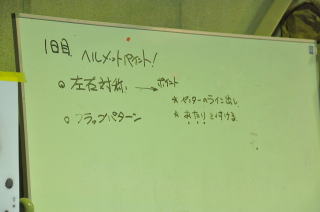 1日目 ヘルメットペイント!
◎ 左右対称. → ポイント
* センターのライン出し
◎ フラップパターン * あたりをつける